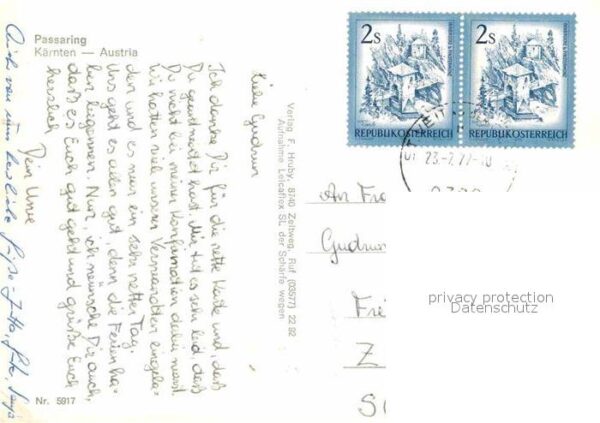 Passaring
Kärnten — Austria
2s
2s
REPUBLIK ÖSTERREICH
REPUBLIK ÖSTERREICH
23.-7.77-10
Verlag F. Hruby, 8740 Zeltweg, Ruf (03577) 22 92
Aufnahme Leicaflex SL der Schärfe wegen
Liebe Gudrun
Ich danke Dir für die nette Karte und, daß
Du geantwortet hast. Mir tut es sehr leid daß
Du nicht bei meiner Konfirmation dabei warst.
Wir hatten viel unserer Verwandten eingela-
den und es war ein sehr netter Tag.
Uns geht es allen gut, denn die Ferien ha-
ben begonnen. Nur, ich wünsche Dir auch,
daß es Euch gut geht und grüße Euch
herzlich
Dein Uwe
Auch von uns liebe Grüße
An
Gudrun
Z
privacy protection
Datenschutz
Nr. 5917